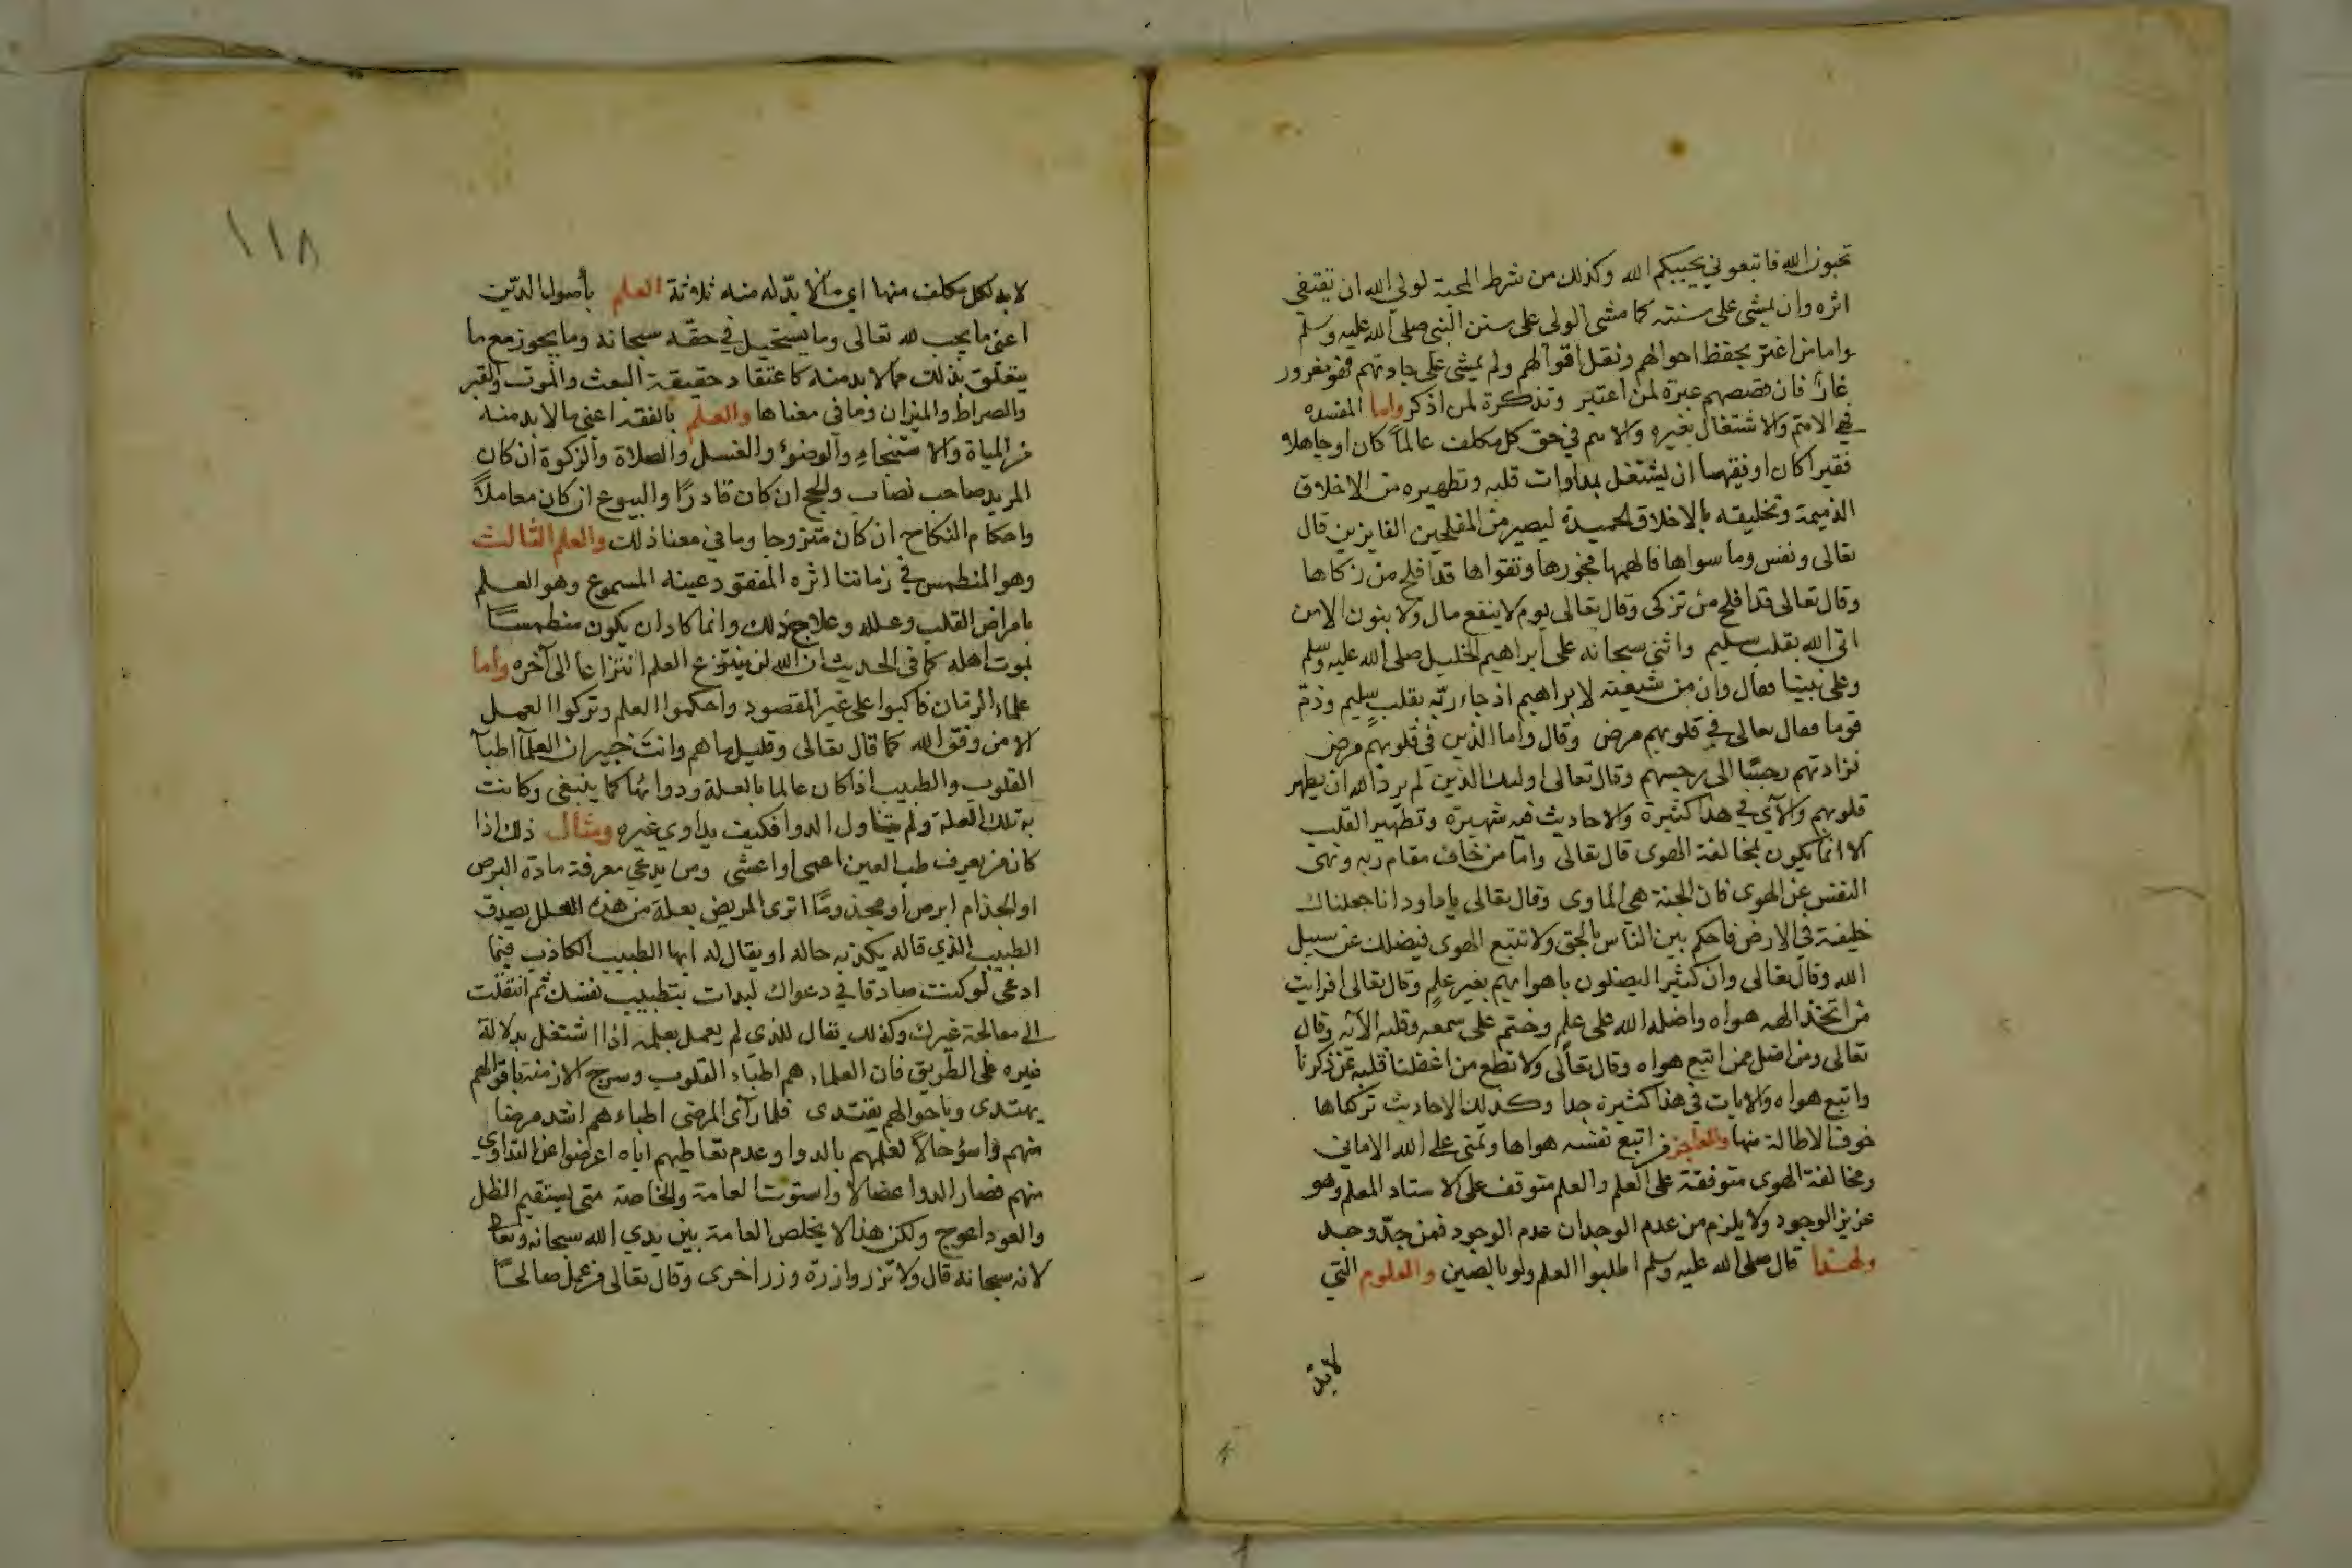 تحبون الله فاتبعوني يحببكم الله وكذلك من شرط المحبة لولي الله ان يقتفي
اثره وان يمشي على سنته كما مشى الولي على سنن النبي صلى الله عليه وسلم
واما من اغتر بحفظ احوالهم ونقل اقوالهم ولم يمشي على جادتهم فهو مغرور
غار فان قصصهم عبرة لمن اعتبر وتذكرة لمن اذكر واما المفسده
في الامتم والاشتغال بغيره والاهم في حق كل مكلف عالماً كان او جاهلا
فقيرا كان او فقيها ان يشتغل بمداوات قلبه وتطهيره من الاخلاق
الذميمة وتخليقه بالاخلاق الحميدة ليصير من المفلحين الفايزين قال
تعالى ونفس وما سواها فالهمها فجورها وتقواها قد افلح من زكاها
وقال تعالى قد افلح من تزكى وقال تعالى يوم لا ينفع مال ولا بنون الا من
اتى الله بقلب سليم واثنى سبحانه على ابراهيم الخليل صلى الله عليه وسلم
وعلى نبينا فقال وان من شيعته لابراهيم اذ جاء ربّه بقلبٍ سليم وذمّ
قوما فقال تعالى في قلوبهم مرض وقال واما الذين في قلوبهم مرض
فزادتهم رجسًا الى رجسهم وقال تعالى اوليك الذين لم يرد الله ان يطهر
قلوبهم والآي في هذا كثيرة والاحاديث فيه شهيرة وتطهير القلب
الا انما يكون بمخالفة الهوى قال تعالى واما من خاف مقام ربه ونهى
النفس عن الهوى فان الجنة هي الماوى وقال تعالى ياداود انا جعلناك
خليفة في الارض فاحكم بين الناس بالحق ولا تتبع الهوى فيضلك عن سبيل
الله وقال تعالى وان كثيرا ليضلون باهوايهم بغير علمٍ وقال تعالى افرايت
من اتخذ الهه هواه واضله الله على علمٍ وختم على سمعه وقلبه الآيه وقال
تعالى ومن اضل ممن اتبع هواه وقال تعالى ولا تطع من اغفلنا قلبه عن ذكرنا
واتبع هواه والايات في هذا كثيرة جدا وكذلك الاحاديث تركناها
خوف الاطالة منها والعاجز من اتبع نفسه هواها وتمنى على الله الاماني
ومخالفة الهوى متوقفة على العلم والعلم متوقف على الاستاد المعلم وهو
عزيز الوجود ولا يلزم من عدم الوجدان عدم الوجود فمن جدّ وجد
ولهذا قال صلى الله عليه وسلم اطلبوا العلم ولو بالصين والعلوم التي
لابدّ
١١٨
لابد لكل مكلف منها اي مما لا بدّ له منه ثلاثة العلم بأصول الدّين
اعني ما يجب لله تعالى وما يستحيل في حقّه سبحانه وما يجوز مع ما
يتعلّق بذلك مما لابد منه كاعتقاد حقيقة البعث والموت والقبر
والصراط والميزان وما في معناها والعلم بالفقه اعني ما لابد منه
من المياة والاستنجاء والوضؤ والغسل والصلاة والزكوة ان كان
المريد صاحب نصاب والحج ان كان قادرًا والبيوع ان كان معاملاً
واحكام النكاح ان كان متزوجا وما في معنا ذلك والعلم الثالث
وهو المنطمس في زماننا اثره المفقود عينه المسموع وهو العلم
بامراض القلب وعلله وعلاج ذلك وانما كاد ان يكون منطمسًا
بموت اهله كما في الحديث ان الله لن ينتزع العلم انتزاعا الى آخره واما
علماء الزمان فاكبوا على غير المقصود واحكموا العلم وتركوا العمل
الا من وفّق الله كما قال تعالى وقليل ما هم وانت خبير ان العلماَ اطباَ
القلوب والطبيب اذا كان عالما بالعلة ودوائها كما ينبغي وكانت
به تلك العلة ولم يتناول الدوا فكيف يداوي غيره ومثال ذلك اذا
كان من يعرف طب العين اعمى او اعشى ومن يدعي معرفة مادة البرص
او الجذام ابرص او مجذوما اترى المريض بعلة من هذه العلل يصدق
الطبيب الذي قاله يكذبه حاله او يقال له ايها الطبيب الكاذب فيما
ادعى لوكنت صادقا في دعواك لبدات بتطبيب نفسك ثم انتقلت
الى معالجة غيرك وكذلك يقال للذي لم يعمل بعلمه اذا اشتغل بدلالة
غيره على الطّريق فان العلماء هم اطباء القلوب وسرج الازمنة باقوالهم
يهتدى وباحوالهم يقتدى فلما رأى المرضى اطباءهم اشد مرضا
منهم واسؤ حالاً لعلمهم بالدوا وعدم تعاطيهم اياه اعرضوا عن التداوي
منهم فصار الدوا عضالا واستوت العامة والخاصة متى يستقيم الظل
والعود اعوج ولكن هذا لا يخلص العامة بين يدي الله سبحانه وتعالى
لانه سبحانه قال ولا تزر وازرة وزر اخرى وقال تعالى من عمل صالحًا